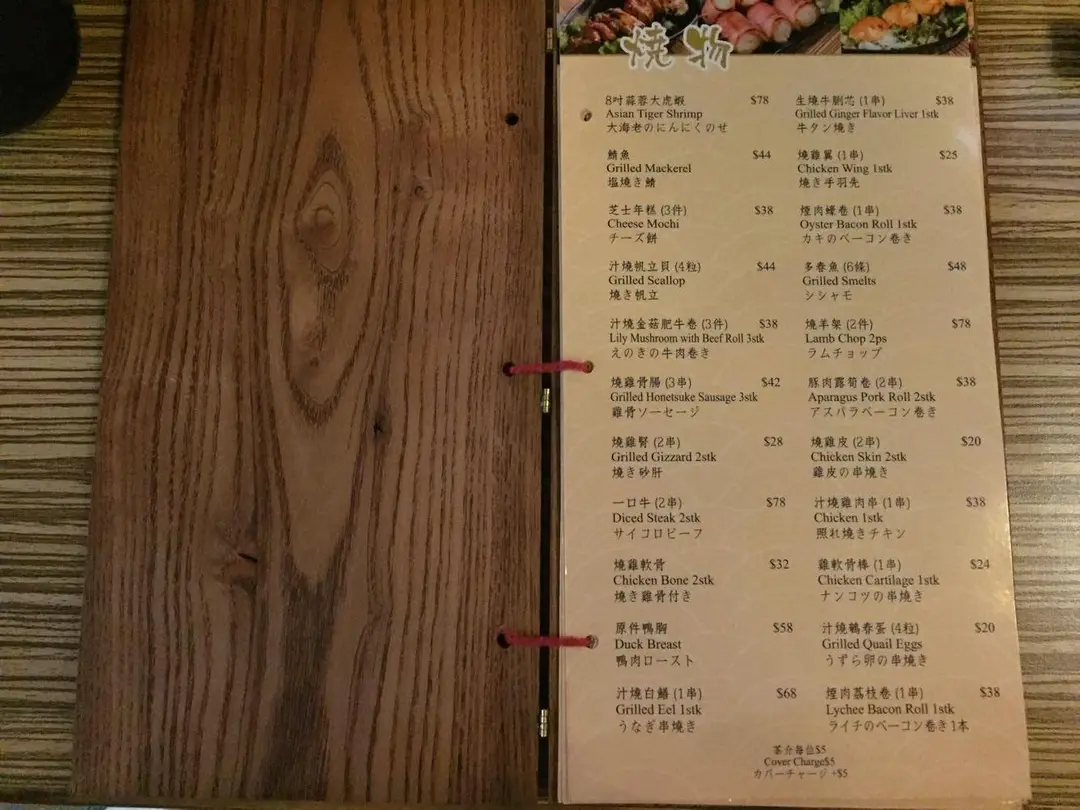 燒物
8吋蒜蓉大虎蝦 $78
Asian Tiger Shrimp
大海老のにんにくのせ
鯖魚 $44
Grilled Mackerel
塩燒き鯖
芝士年糕 (3件) $38
Cheese Mochi
チーズ餅
汁燒帆立貝 (4粒) $44
Grilled Scallop
燒き帆立
汁燒金菇肥牛卷 (3件) $38
Lily Mushroom with Beef Roll 3stk
えのきの牛肉巻き
燒雞骨腸 (3串) $42
Grilled Honetsuke Sausage 3stk
雞骨ソーセージ
燒雞腎 (2串) $28
Grilled Gizzard 2stk
燒き砂肝
一口牛 (2串) $78
Diced Steak 2stk
サイコロビーフ
燒雞軟骨 $32
Chicken Bone 2stk
燒き雞骨付き
原件鴨胸 $58
Duck Breast
鴨肉ロースト
汁燒白鱔 (1串) $68
Grilled Eel 1stk
うなぎ串燒き
生燒牛脷芯 (1串) $38
Grilled Ginger Flavor Liver 1stk
牛タン燒き
燒雞翼 (1串) $25
Chicken Wing 1stk
燒き手羽先
煙肉蠔卷 (1串) $38
Oyster Bacon Roll 1stk
カキのベーコン巻き
多春魚 (6條) $48
Grilled Smelts
シシャモ
燒羊架 (2件) $78
Lamb Chop 2ps
ラムチョップ
豚肉露荀卷 (2串) $38
Aparagus Pork Roll 2stk
アスパラベーコン巻き
燒雞皮 (2串) $20
Chicken Skin 2stk
雞皮の串燒き
汁燒雞肉串 (1串) $38
Chicken 1stk
照れ燒きチキン
雞軟骨棒 (1串) $24
Chicken Cartilage 1stk
ナンコツの串燒き
汁燒鵪春蛋 (4粒) $20
Grilled Quail Eggs
うずら卵の串燒き
煙肉荔枝卷 (1串) $38
Lychee Bacon Roll 1stk
ライチのベーコン巻き1本
茶介每位$5
Cover Charge$5
カバーチャージ +$5